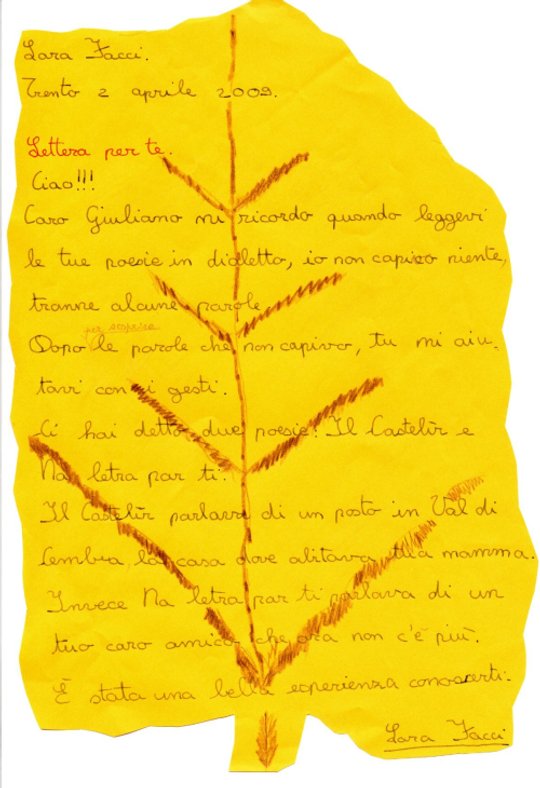 Lara Facci.
Trento 2 aprile 2009.
Lettera per te.
Ciao!!!
Caro Giuliano mi ricordo quando leggevi
le tue poesie in dialetto, io non capivo niente,
tranne alcune parole.
per scoprire
Dopo le parole che non capivo, tu mi aiu-
tavi con i gesti.
Ci hai detto due poesie: Il Castelìr e
Na letra par ti.
Il Castelìr parlava di un posto in Val di
Cembra, la casa dove abitava tua mamma.
Invece Na letra par ti parlava di un
tuo caro amico che ora non c'è più.
È stata una bella esperienza conoscerti.
Lara Facci